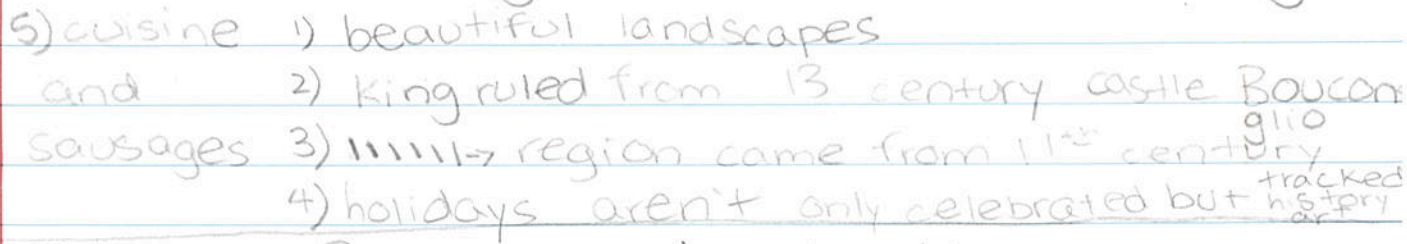 5) cuisine 1) beautiful landscapes
and 2) King ruled from 13 century castle Boucon
glio
sausages 3) → region came from 11th century
4) holidays aren't only celebrated but tracked
history